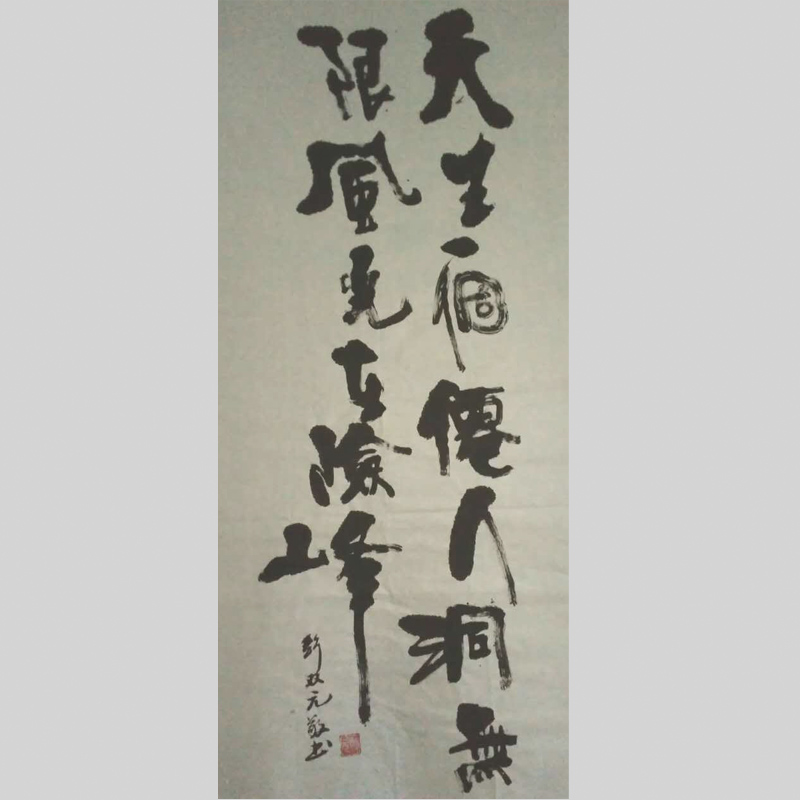 天生個僊人洞無
限風光在險峰
彭双元敬书